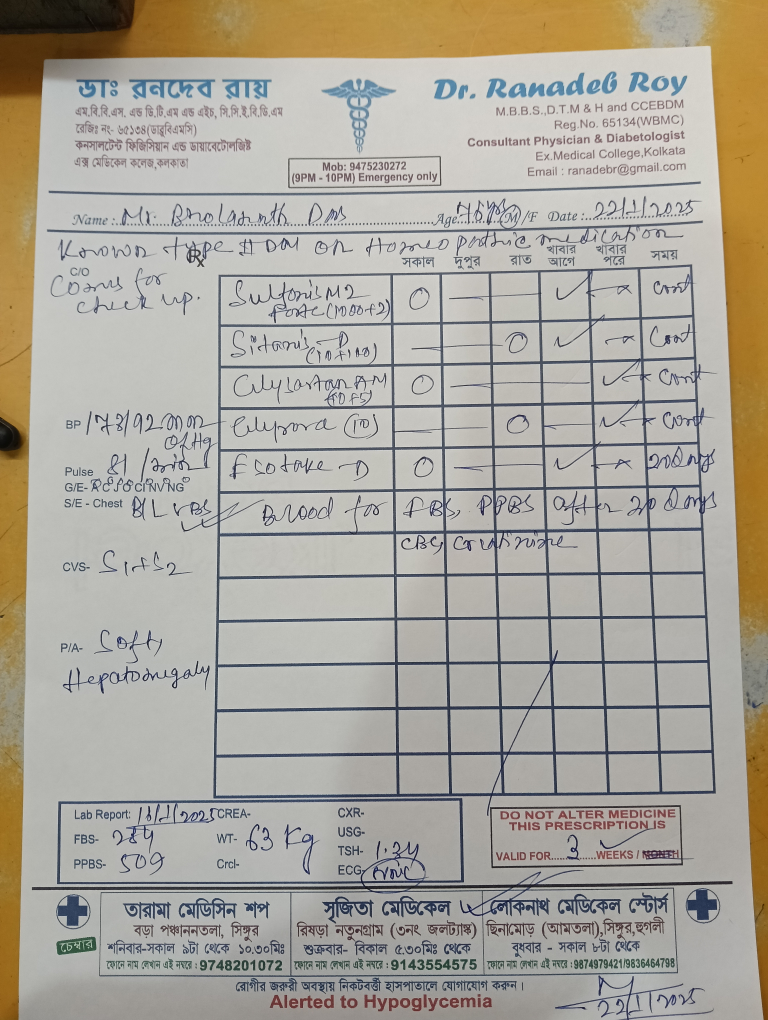 ডাঃ রনদেব রায়
এম.বি.বি.এস. এন্ড ডি.টি.এম এন্ড এইচ, সি.সি.ই.বি.ডি.এম
রেজিঃ নং- ৬৫১৩৪(ডাব্লুবিএমসি)
কনসালটেন্ট ফিজিসিয়ান এন্ড ডায়াবেটোলজিষ্ট
এক্স মেডিকেল কলেজ,কলকাতা
Mob: 9475230272
(9PM - 10PM) Emergency only
Dr. Ranadeb Roy
M.B.B.S.,D.T.M & H and CCEBDM
Reg.No. 65134(WBMC)
Consultant Physician & Diabetologist
Ex.Medical College,Kolkata
Email : ranadebr@gmail.com
Name : Mr. Bholanath Das Age M/F Date : 22/1/2025
Known type II DM on Homeopathic medication
Rx
সকাল দুপুর রাত খাবার আগে খাবার পরে সময়
C/O
Comes for
check up.
Sulfonis M2 Forte (1000+2) O — — ✓ — x Cont
Sitanis-D (10+100) — O ✓ — x Cont
Glysartan AM (40+5) O — ✓ x Cont
BP 173/92 mm of Hg
(10) — O — ✓ x Cont
Pulse 81 /min
Esotake-D O — — ✓ — x 20 Days
G/E-
S/E - Chest B/L VBS
Blood for FBS, PPBS after 20 Days
CBC, Creatinine
CVS- S1+S2
P/A- Soft,
Hepatomegaly
Lab Report: 16/1/2025 CREA- CXR-
FBS- 284 WT- 63 Kg USG-
PPBS- 509 Crcl- TSH- 1.24
ECG-
DO NOT ALTER MEDICINE
THIS PRESCRIPTION IS
VALID FOR 3 WEEKS / MONTH
চেম্বার
তারামা মেডিসিন শপ
বড়া পঞ্চাননতলা, সিঙ্গুর
শনিবার-সকাল ৯টা থেকে ১০.৩০মিঃ
ফোনে নাম লেখান এই নম্বরে : 9748201072
সৃজিতা মেডিকেল
রিষড়া নতুনগ্রাম (৩নং জলট্যাঙ্ক)
শুক্রবার- বিকাল ৫.৩০মিঃ থেকে
ফোনে নাম লেখান এই নম্বরে : 9143554575
লোকনাথ মেডিকেল স্টোর্স
ছিনামোড় (আমতলা),সিঙ্গুর,হুগলী
বুধবার - সকাল ৮টা থেকে
ফোনে নাম লেখান এই নম্বরে :9874979421/9836464798
রোগীর জরুরী অবস্থায় নিকটবর্ত্তী হাসপাতালে যোগাযোগ করুন।
Alerted to Hypoglycemia
22/1/2025